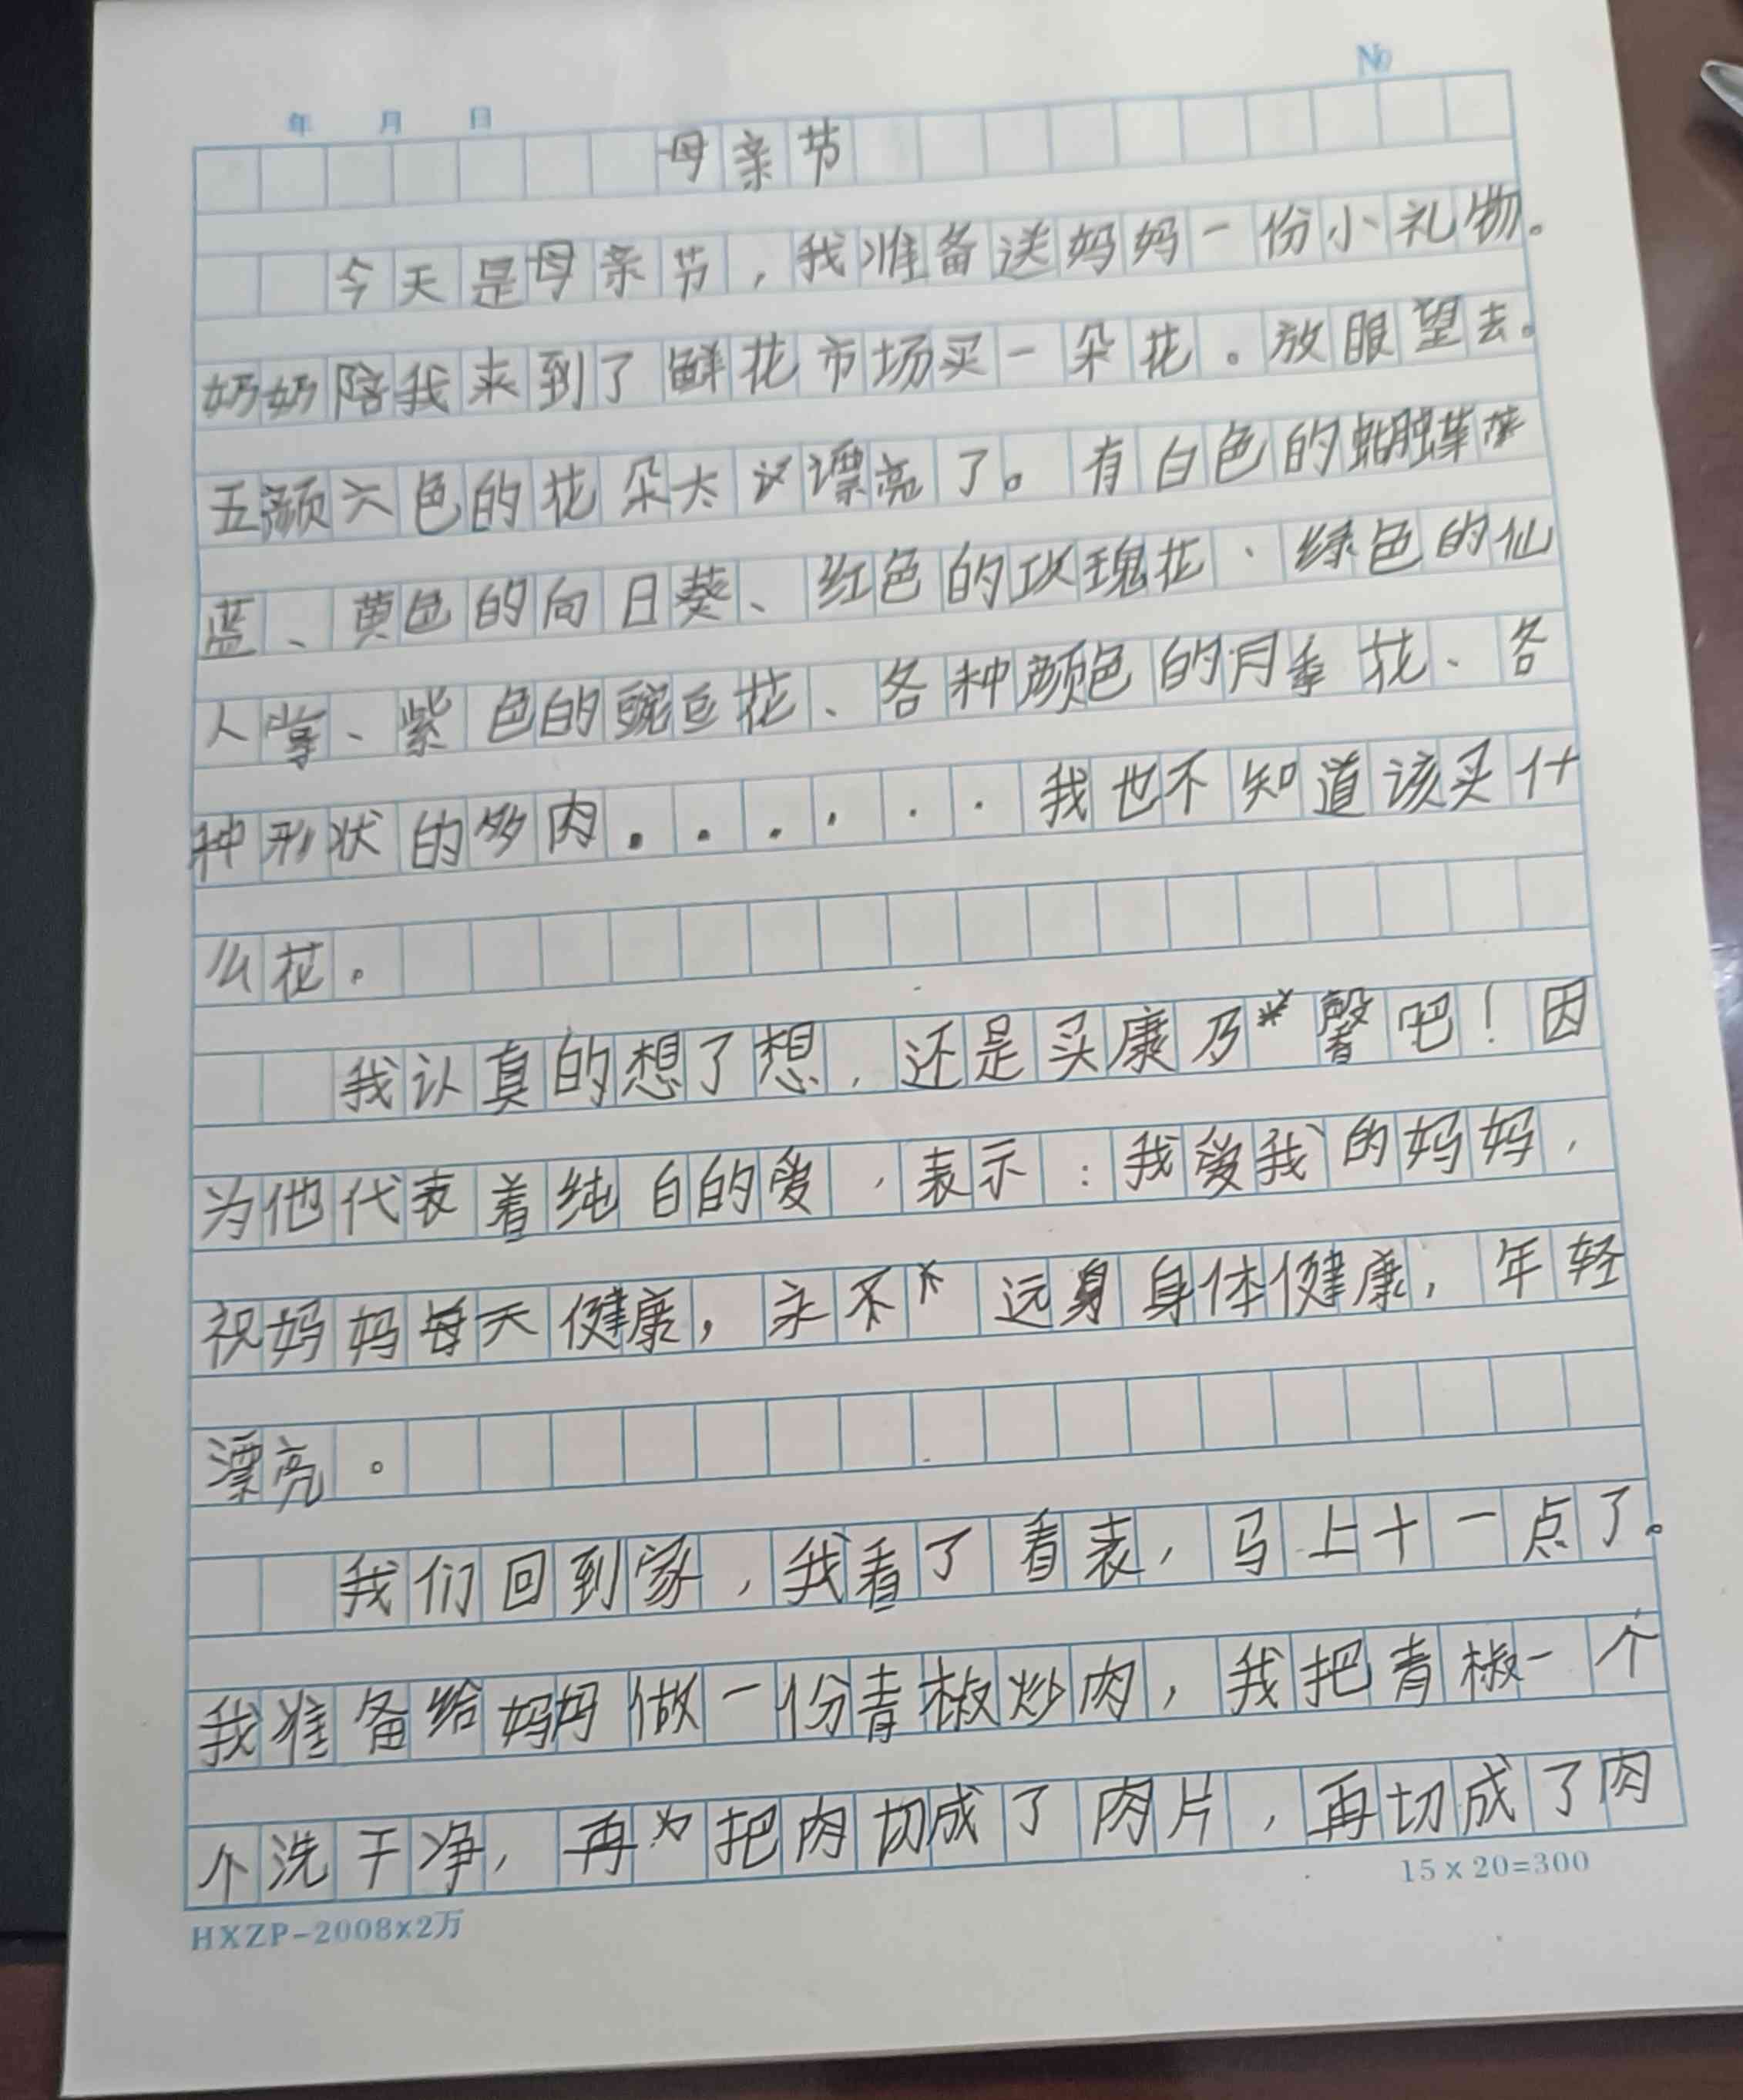 年 月 日 №
母亲节
今天是母亲节，我准备送妈妈一份小礼物。
奶奶陪我来到了鲜花市场买一朵花。放眼望去。
五颜六色的花朵太漂亮了。有白色的蝴蝶
蓝、黄色的向日葵、红色的玫瑰花、绿色的仙
人掌、紫色的豌豆花、各种颜色的月季花、各
种形状的多肉......我也不知道该买什
么花。
我认真的想了想，还是买康乃馨吧！因
为他代表着纯白的爱，表示：我爱我的妈妈，
祝妈妈每天健康，永远身体健康，年轻
漂亮。
我们回到家，我看了看表，马上十一点了。
我准备给妈妈做一份青椒炒肉，我把青椒一个
个洗干净，再把肉切成了肉片，再切成了肉
15×20=300
HXZP-2008×2万